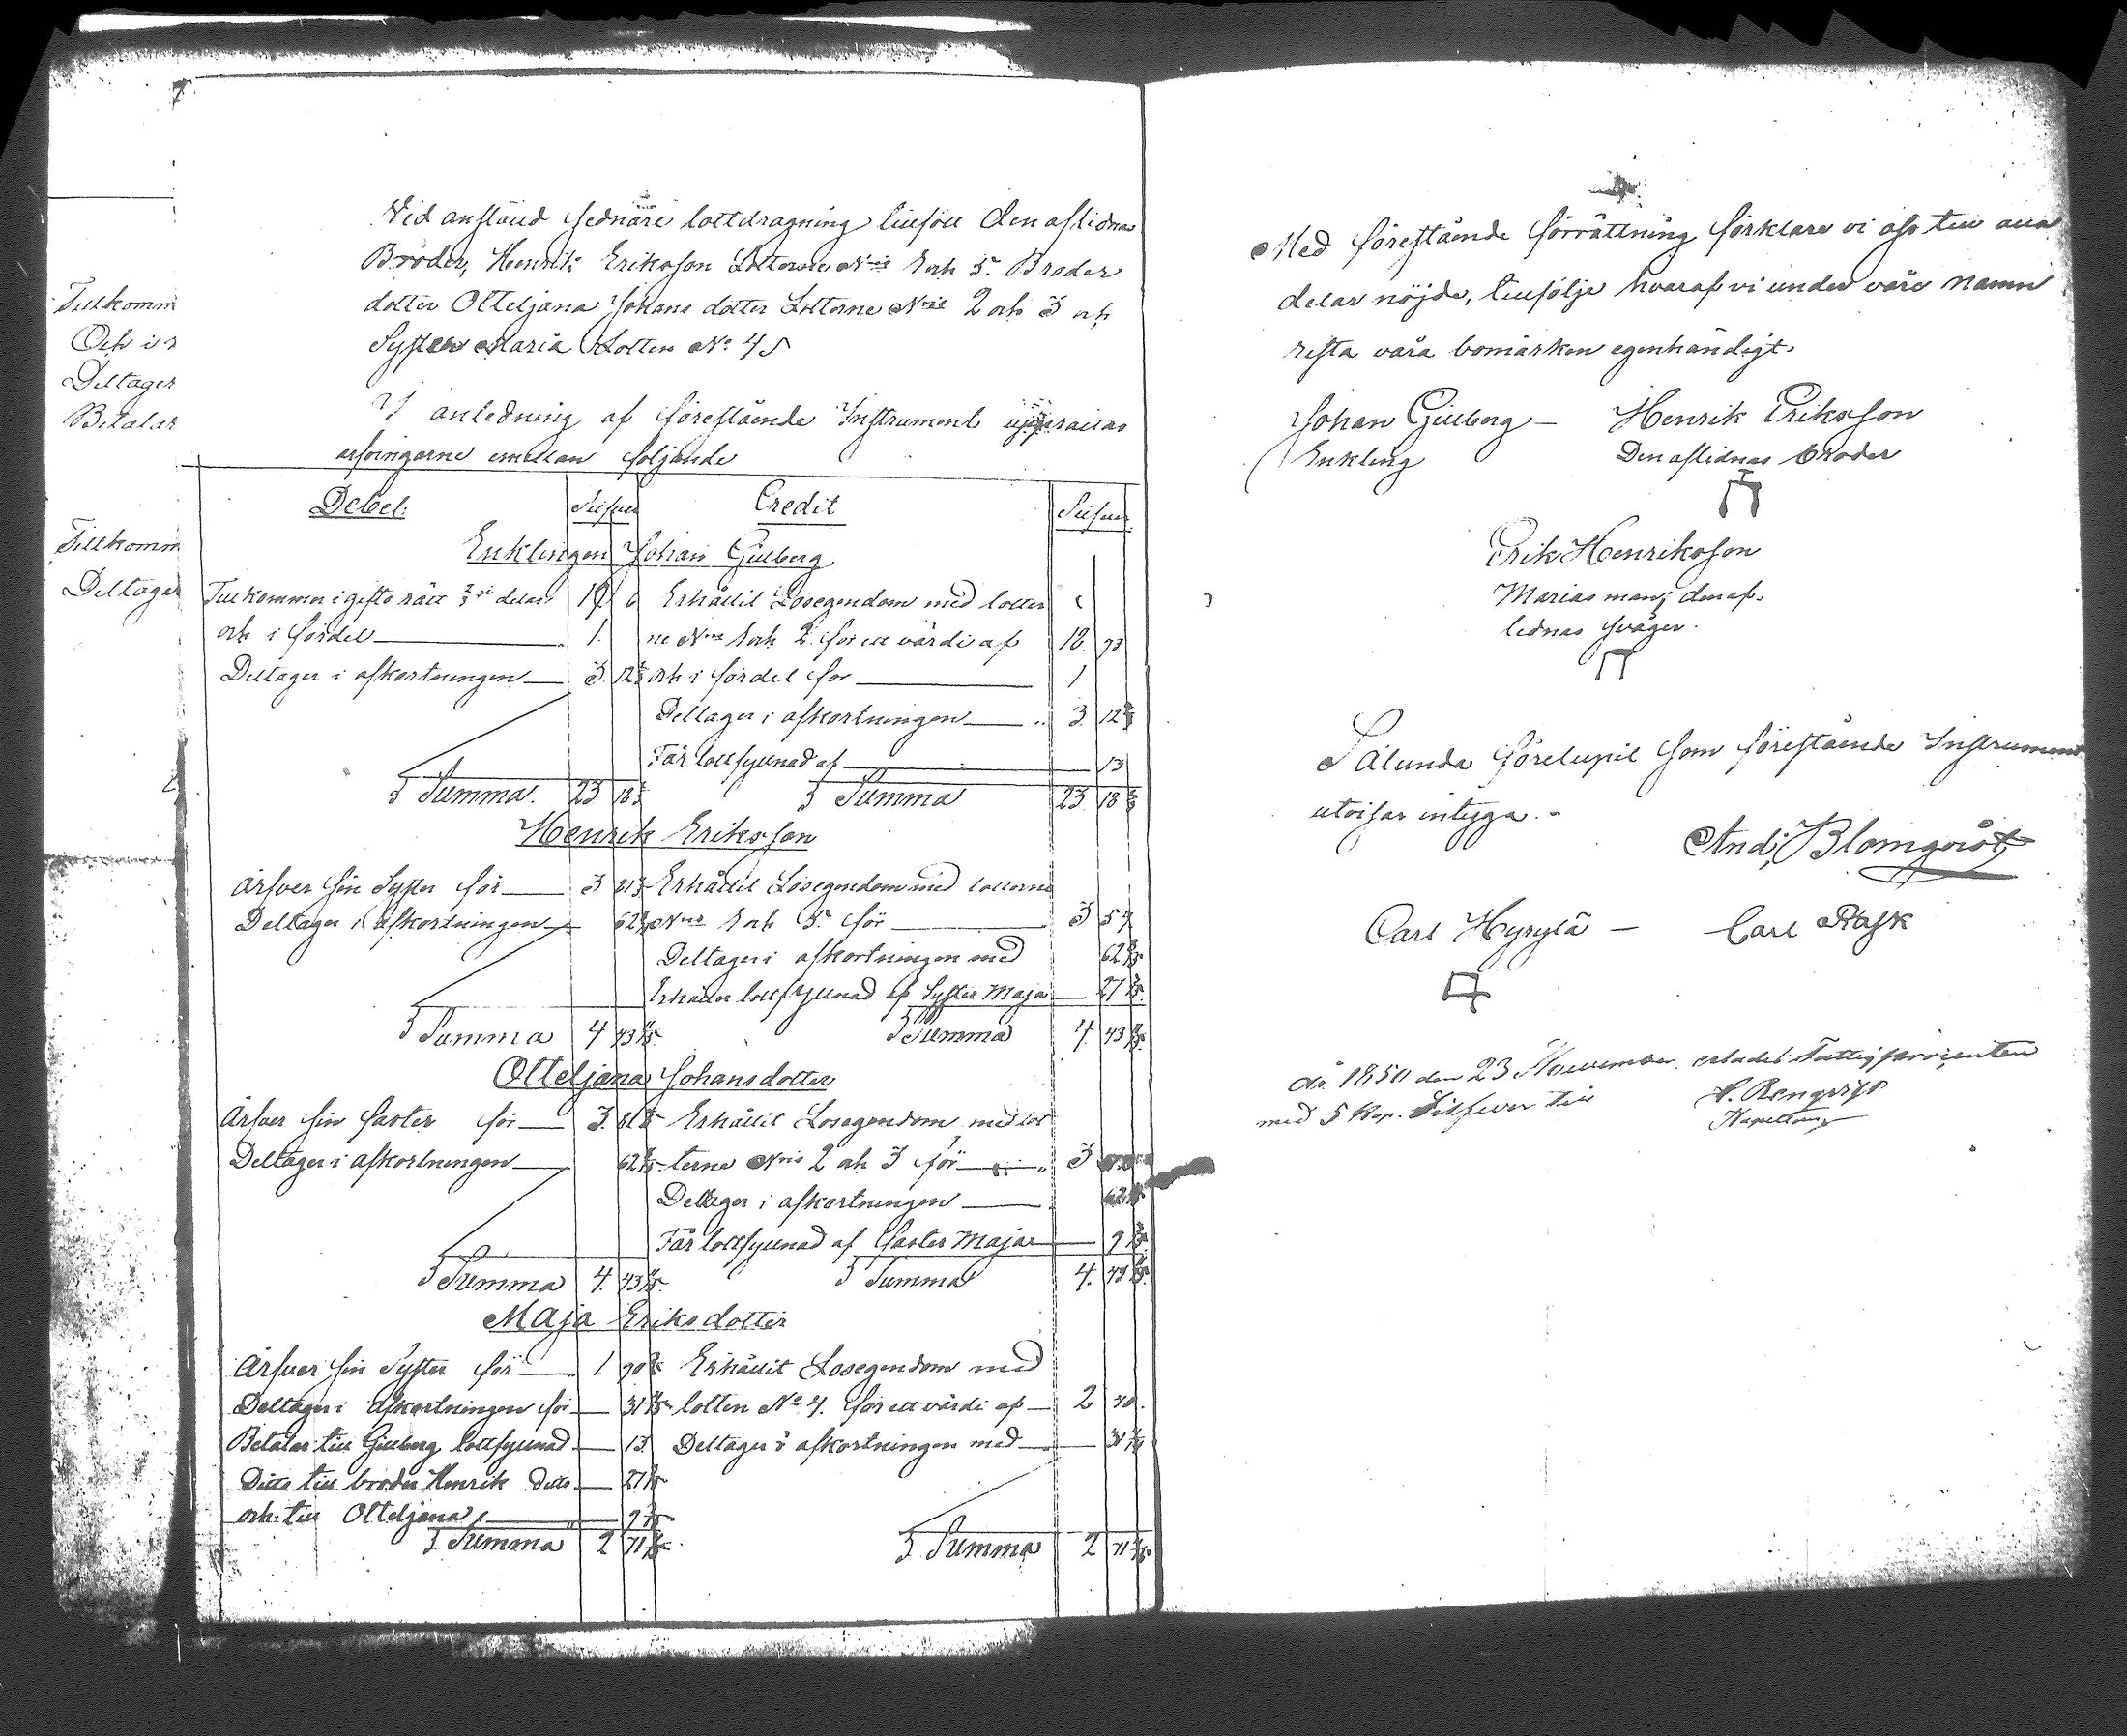 Vid anstäld sednare lottdragning tillföll den aflidnas
Broder, Henrik Eriksson Lotterne N:ris 1 och 5. Broder
dotter Otteljana Johans dotter Lotterne N:ris 2 och 3 och
Syster Maria Lotten N:o 4
I anledning af förestående Instrument
arfvingarne emellan följande
Debet: Silfver Credit Silfver
Enklingen Johan Gillberg
Tillkommer i gifto rätt 2/3 delar 19 6 Erhållit Lösegendom med lotter
och i fördel 1. ne N:ris 1 och 2. för ett värde af 18 93
Deltager i afkortningen 3 12 och i fördel för 1
Deltager i afkortningen 3 12
Får lottfyllnad af 13
Summa 23 18 Summa 23 18
Henrik Eriksson
Ärfver sin Syster för 3 81 Erhållit Lösegendom med lotterne
Deltager i afkortningen 62 N:ris 1 och 5. för 3 54
Deltager i afkortningen med 62
Erhåller lottfyllnad af Syster Maja 27
Summa 4 43 Summa 4 43
Otteljana Johansdotter
Ärfver sin faster för 3. 81 Erhållit Lösegendom med lot
Deltager i afkortningen 62 terne N:ris 2 och 3 för 3
Deltager i afkortningen 62
Får lottfyllnad af faster Maja 9
Summa 4 43 Summa 4. 43
Maja Eriksdotter
Ärfver sin Syster för 1. 90 Erhållit Lösegendom med
Deltager i afkortningen för 31 lotten N:o 4. för ett värde af 2 40.
Betalar till Gillberg lottfyllnad 13 Deltager i afkortningen med 31
Ditto till broder Henrik Ditto 27
och till Otteljana 9
Summa 2 71 Summa 2 71
Tillkomm
Och i
Deltager
Betalar
Tillkomm
Deltager
Med förestående förrättning förklare vi oss till alla
delar nöjde, tillfölje hvaraf vi under våre namn
rista våra bomärken egenhändigt.
Johan Gillberg – Henrik Eriksson
Enkling Den aflidnas broder
Erik Henriksson
Marias man; den af-
lednas svåger.
Sålunda förelupit som förestående Instrument
utvisar intyga.
And: Blomqvist
Carl Hyrylä – Carl Rask
År 1850 den 23 November erlades Fattigprocenten
med 5 kop. Silfver till H. Renqvist
Kapellan